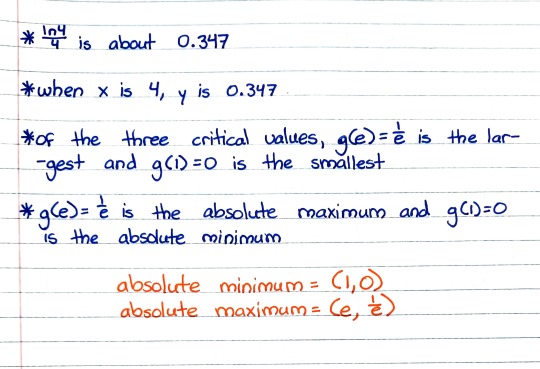 * ln4/4 is about 0.347
* when x is 4, y is 0.347
* of the three critical values, g(e) = 1/e is the lar-
-gest and g(1) = 0 is the smallest
* g(e) = 1/e is the absolute maximum and g(1) = 0
is the absolute minimum
absolute minimum = (1,0)
absolute maximum = (e, 1/e)